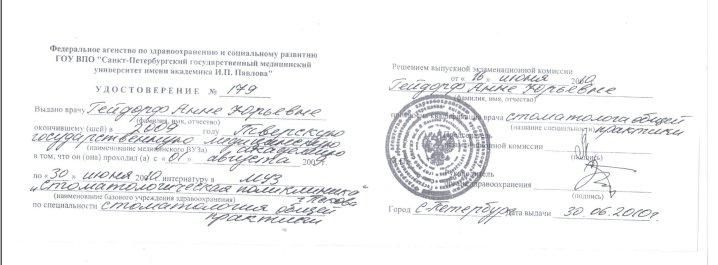 Федеральное агенство по здравоохранению и социальному развитию
ГОУ ВПО "Санкт-Петербургский государственный медицинский
университет имени академика И.П. Павлова"
УДОСТОВЕРЕНИЕ № 179
Выдано врачу Гейдорф Анне Юрьевне
(фамилия, имя, отчество)
окончившему (шей) в 2009 году Тверскую
государственную медицинскую
академию
(наименование медицинского ВУЗа)
в том, что он (она) проходил (а) с «01» августа 2009г.
по «30» июня 2010г. интернатуру в МУЗ
„Стоматологическая поликлиника"
г. Пскова
(наименование базового учреждения здравоохранения)
по специальности стоматология общей
практики
Решением выпускной экзаменационной комиссии
от «16» июня 2010г.
Гейдорф Анне Юрьевне
(фамилия, имя, отчество)
квалификация врача стоматолога общей
(название специальности)
практики
комиссии
(подпись)
здравоохранения
(подпись)
Город С-Петербург Дата выдачи 30.06.2010г.